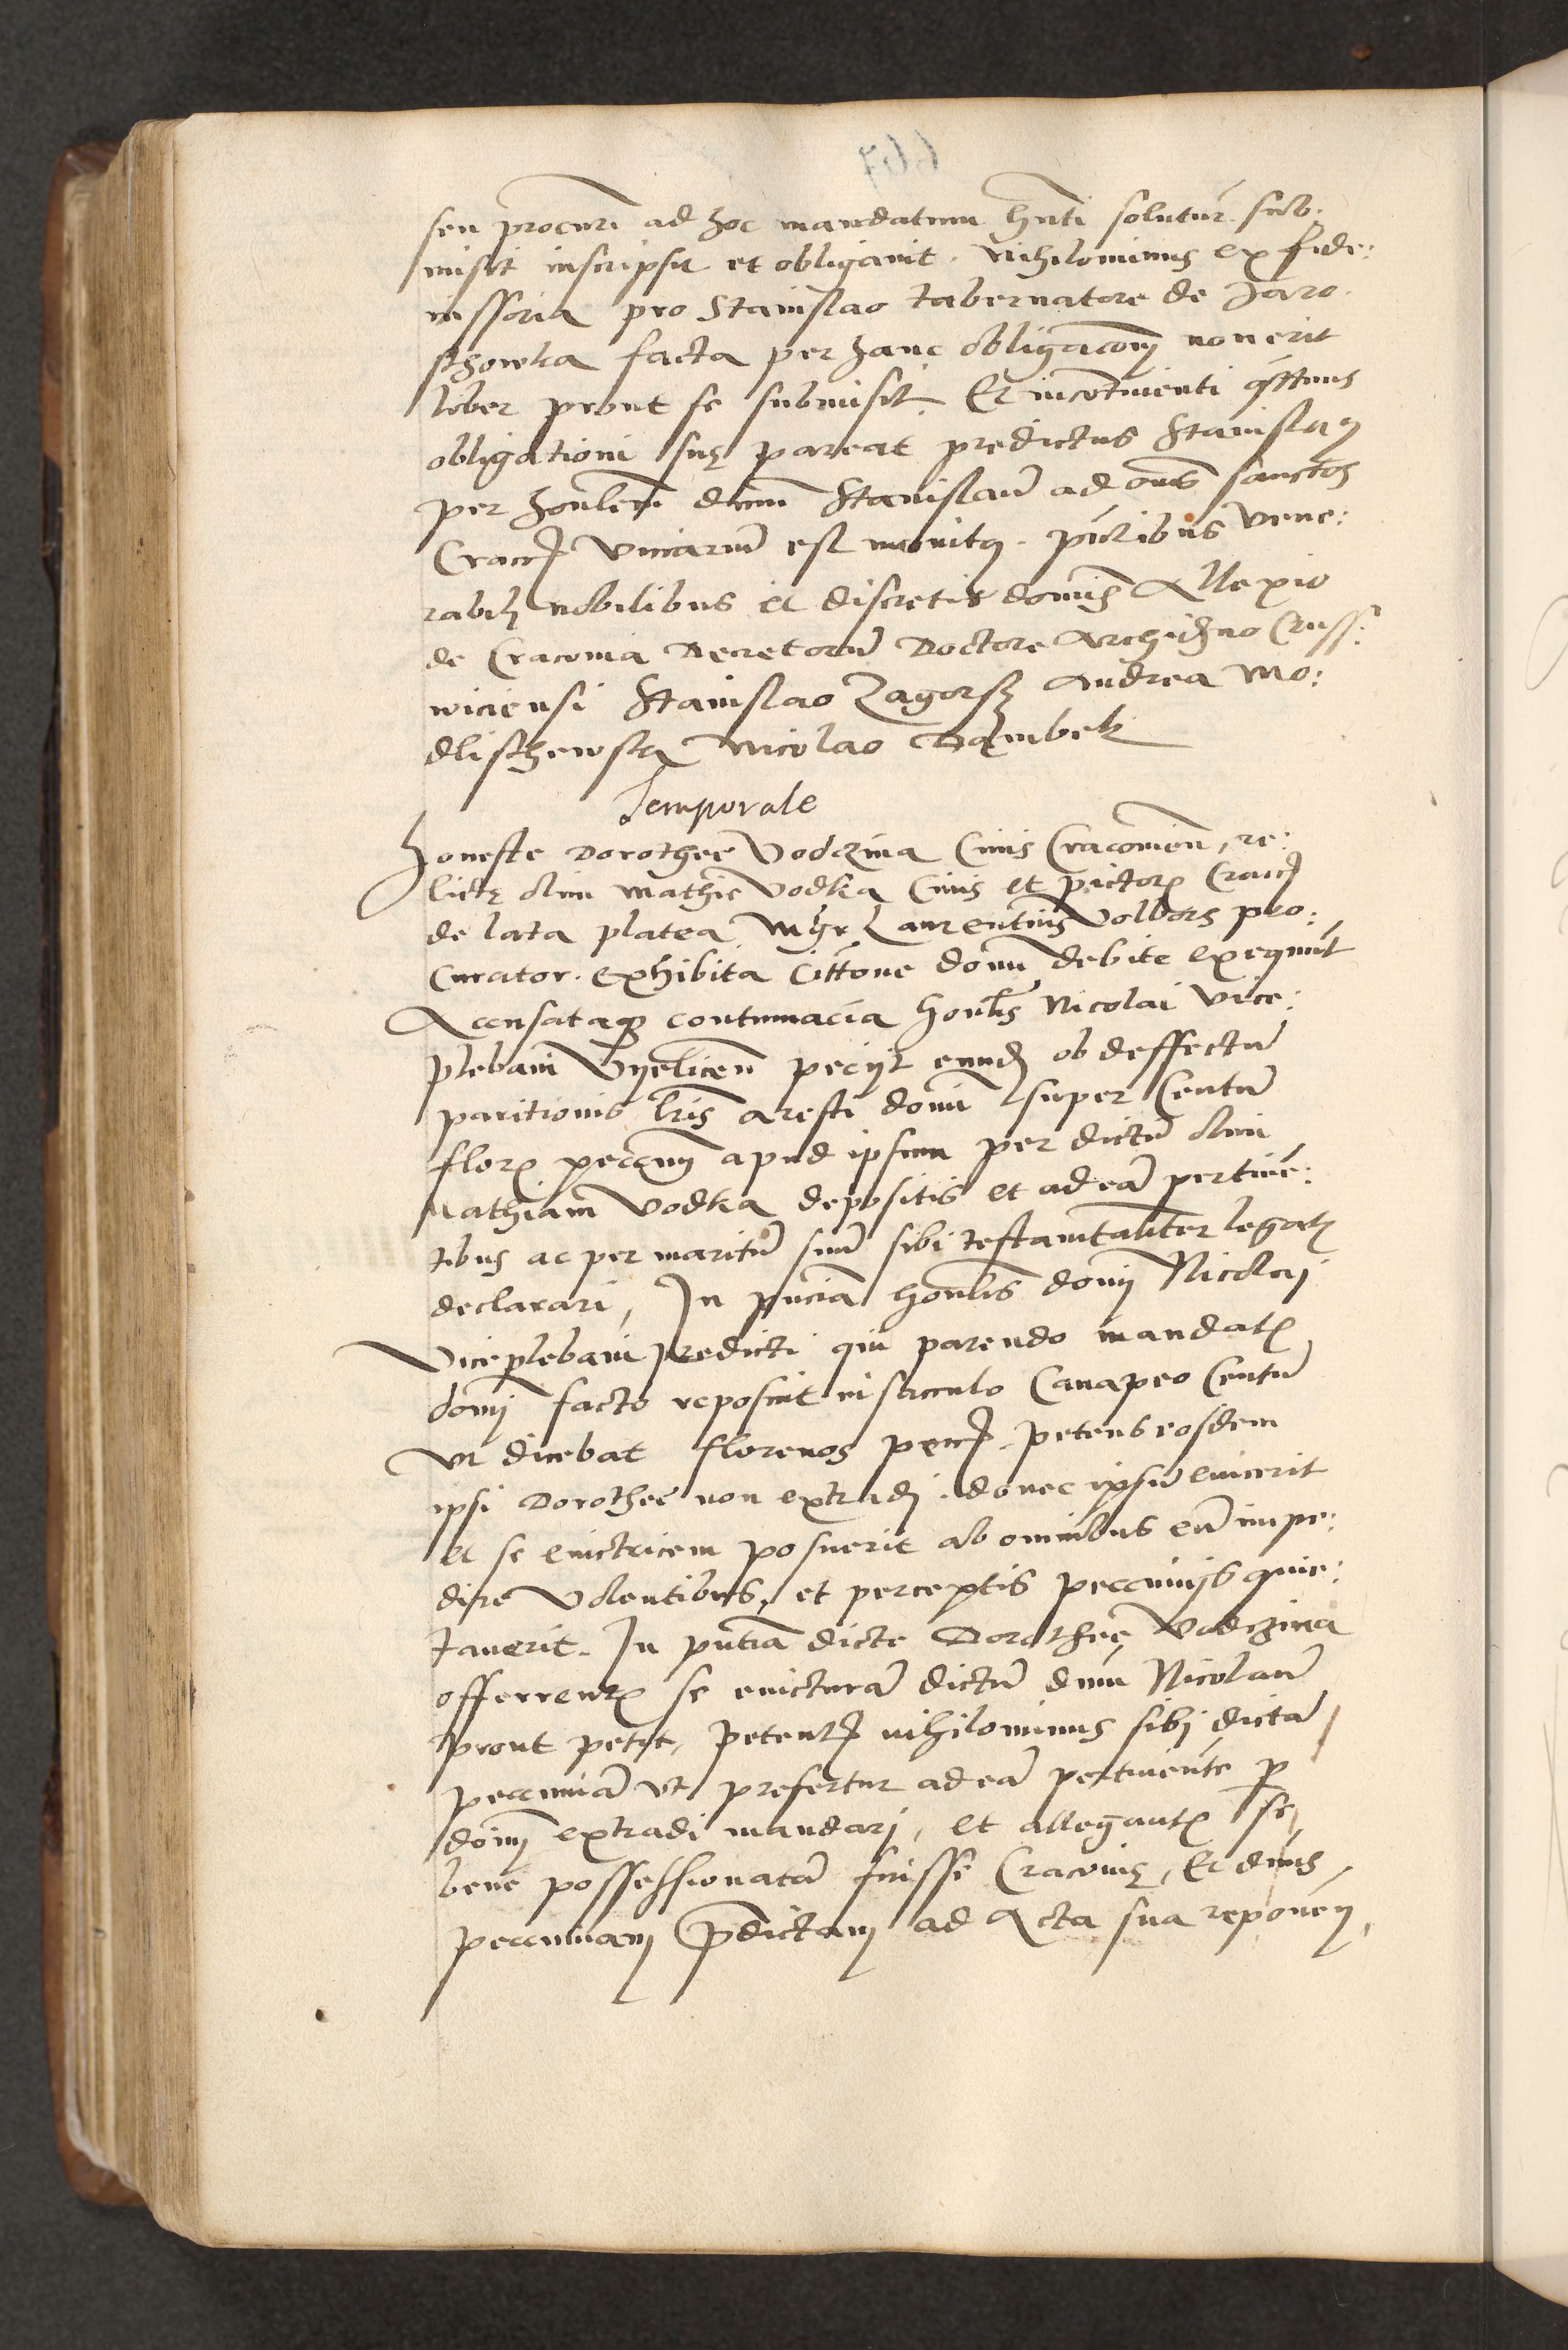 seu procuri ad hoc mandatum hnti solutur. sub:
misit inscripsit et obligavit. Nihilominus ex fide:
iussoria pro Stanislao tabernatore de Jaro
schowka facta per hanc obligacom non erit
liber prout se submisit. Et incontinenti
obligationi suę pareat predictus Stanislaus
per honlem dnum Stanislaum ad oms sanctos
Cracoviae vicarium est monitus. pntibus vene:
rabili nobilibus et discretis domis Allexio
de Cracovia Decretorum Doctore Archidno Crus:
wiciensi Stanislao Zagorsky Andrea Mo:
dlischewsky Nicolao Dambek
Temporale
Honeste Dorothee Vodczina Civis Cracovien, re:
lictę olim Mathie Vodka Civis et pictoris Cracoviae
de lata platea Mgr Laurentius Volbors pro:
curator. exhibita Cittone domi debite exequut
Accusataque contumacia honlis Nicolai vice:
plebani Vyelicen peciit eundem ob deffectum
paritionis lris aresti domi super Centum
floris peccuniis apud ipsum per dictum olim
Mathiam Vodka depositis et ad eam pertine:
tibus ac per maritum suum sibi testamtaliter legatis
declarari, In pnciam honlis domi Nicolai
Viceplebani predicti qui parendo mandatis
domi facto reposuit in sacculo Canapeo Centum
ut dicebat florenos peccuniae. petens eosdem
ipsi Dorothee non extradi. donec ipsum evicerit
et se evictricem posuerit ab omnibus eum impe:
dire volentibus, et perceptis peccuniis quie:
taverit. In pntia dicte Dorothee Vodczina
offerrentis se evicturam dictum dnum Nicolaum
prout petit, petentis nihilominus sibi dictam
peccuniam ut prefertur ad eam pertinente per
domi extradi mandari, et allegantis se
bene possessionatam fuisse Cracovię, Et dnus
peccuniam predictam ad Acta sua reponen,